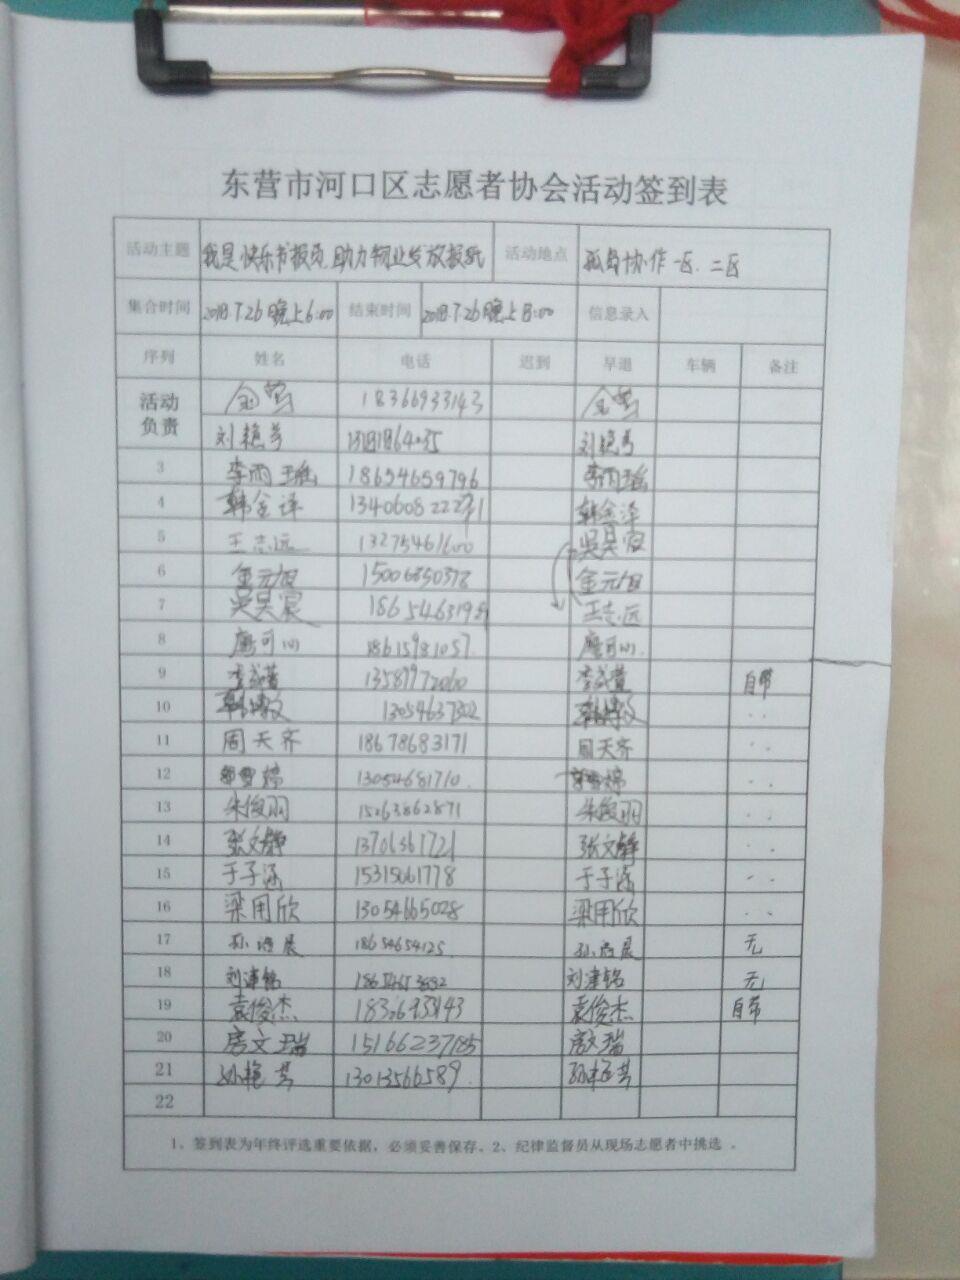 东营市河口区志愿者协会活动签到表
活动主题 我是快乐书报员,助力物业发放报纸 活动地点 孤岛协作一区、二区
集合时间 2018.7.26晚上6:00 结束时间 2018.7.26晚上8:00 信息录入
序列 姓名 电话 迟到 早退 车辆 备注
活动负责 18366933143
刘艳芳 刘艳芳
3 李雨瑶 18654659796 李雨瑶
4 韩金泽 韩金泽
5 王志远 13275461600 吴昊宸
6 金元旭 15006850378 金元旭
7 吴昊宸 王志远
8 廖可心 18615981057 廖可心
9 13589972060 自带
10 13054637302 ..
11 周天齐 18678683171 周天齐 ..
12 13054681710 ..
13 朱俊羽 15263862871 朱俊羽 ..
14 张文静 张文静 ..
15 于子涵 15315061778 于子涵 ..
16 梁用欣 13054665028 梁用欣 ..
17 无
18 刘津铭 刘津铭 无
19 袁俊杰 袁俊杰 自带
20 房文瑞 房文瑞
21 孙艳芳 13013566589 孙艳芳
22
1、签到表为年终评选重要依据,必须妥善保存。2、纪律监督员从现场志愿者中挑选 。